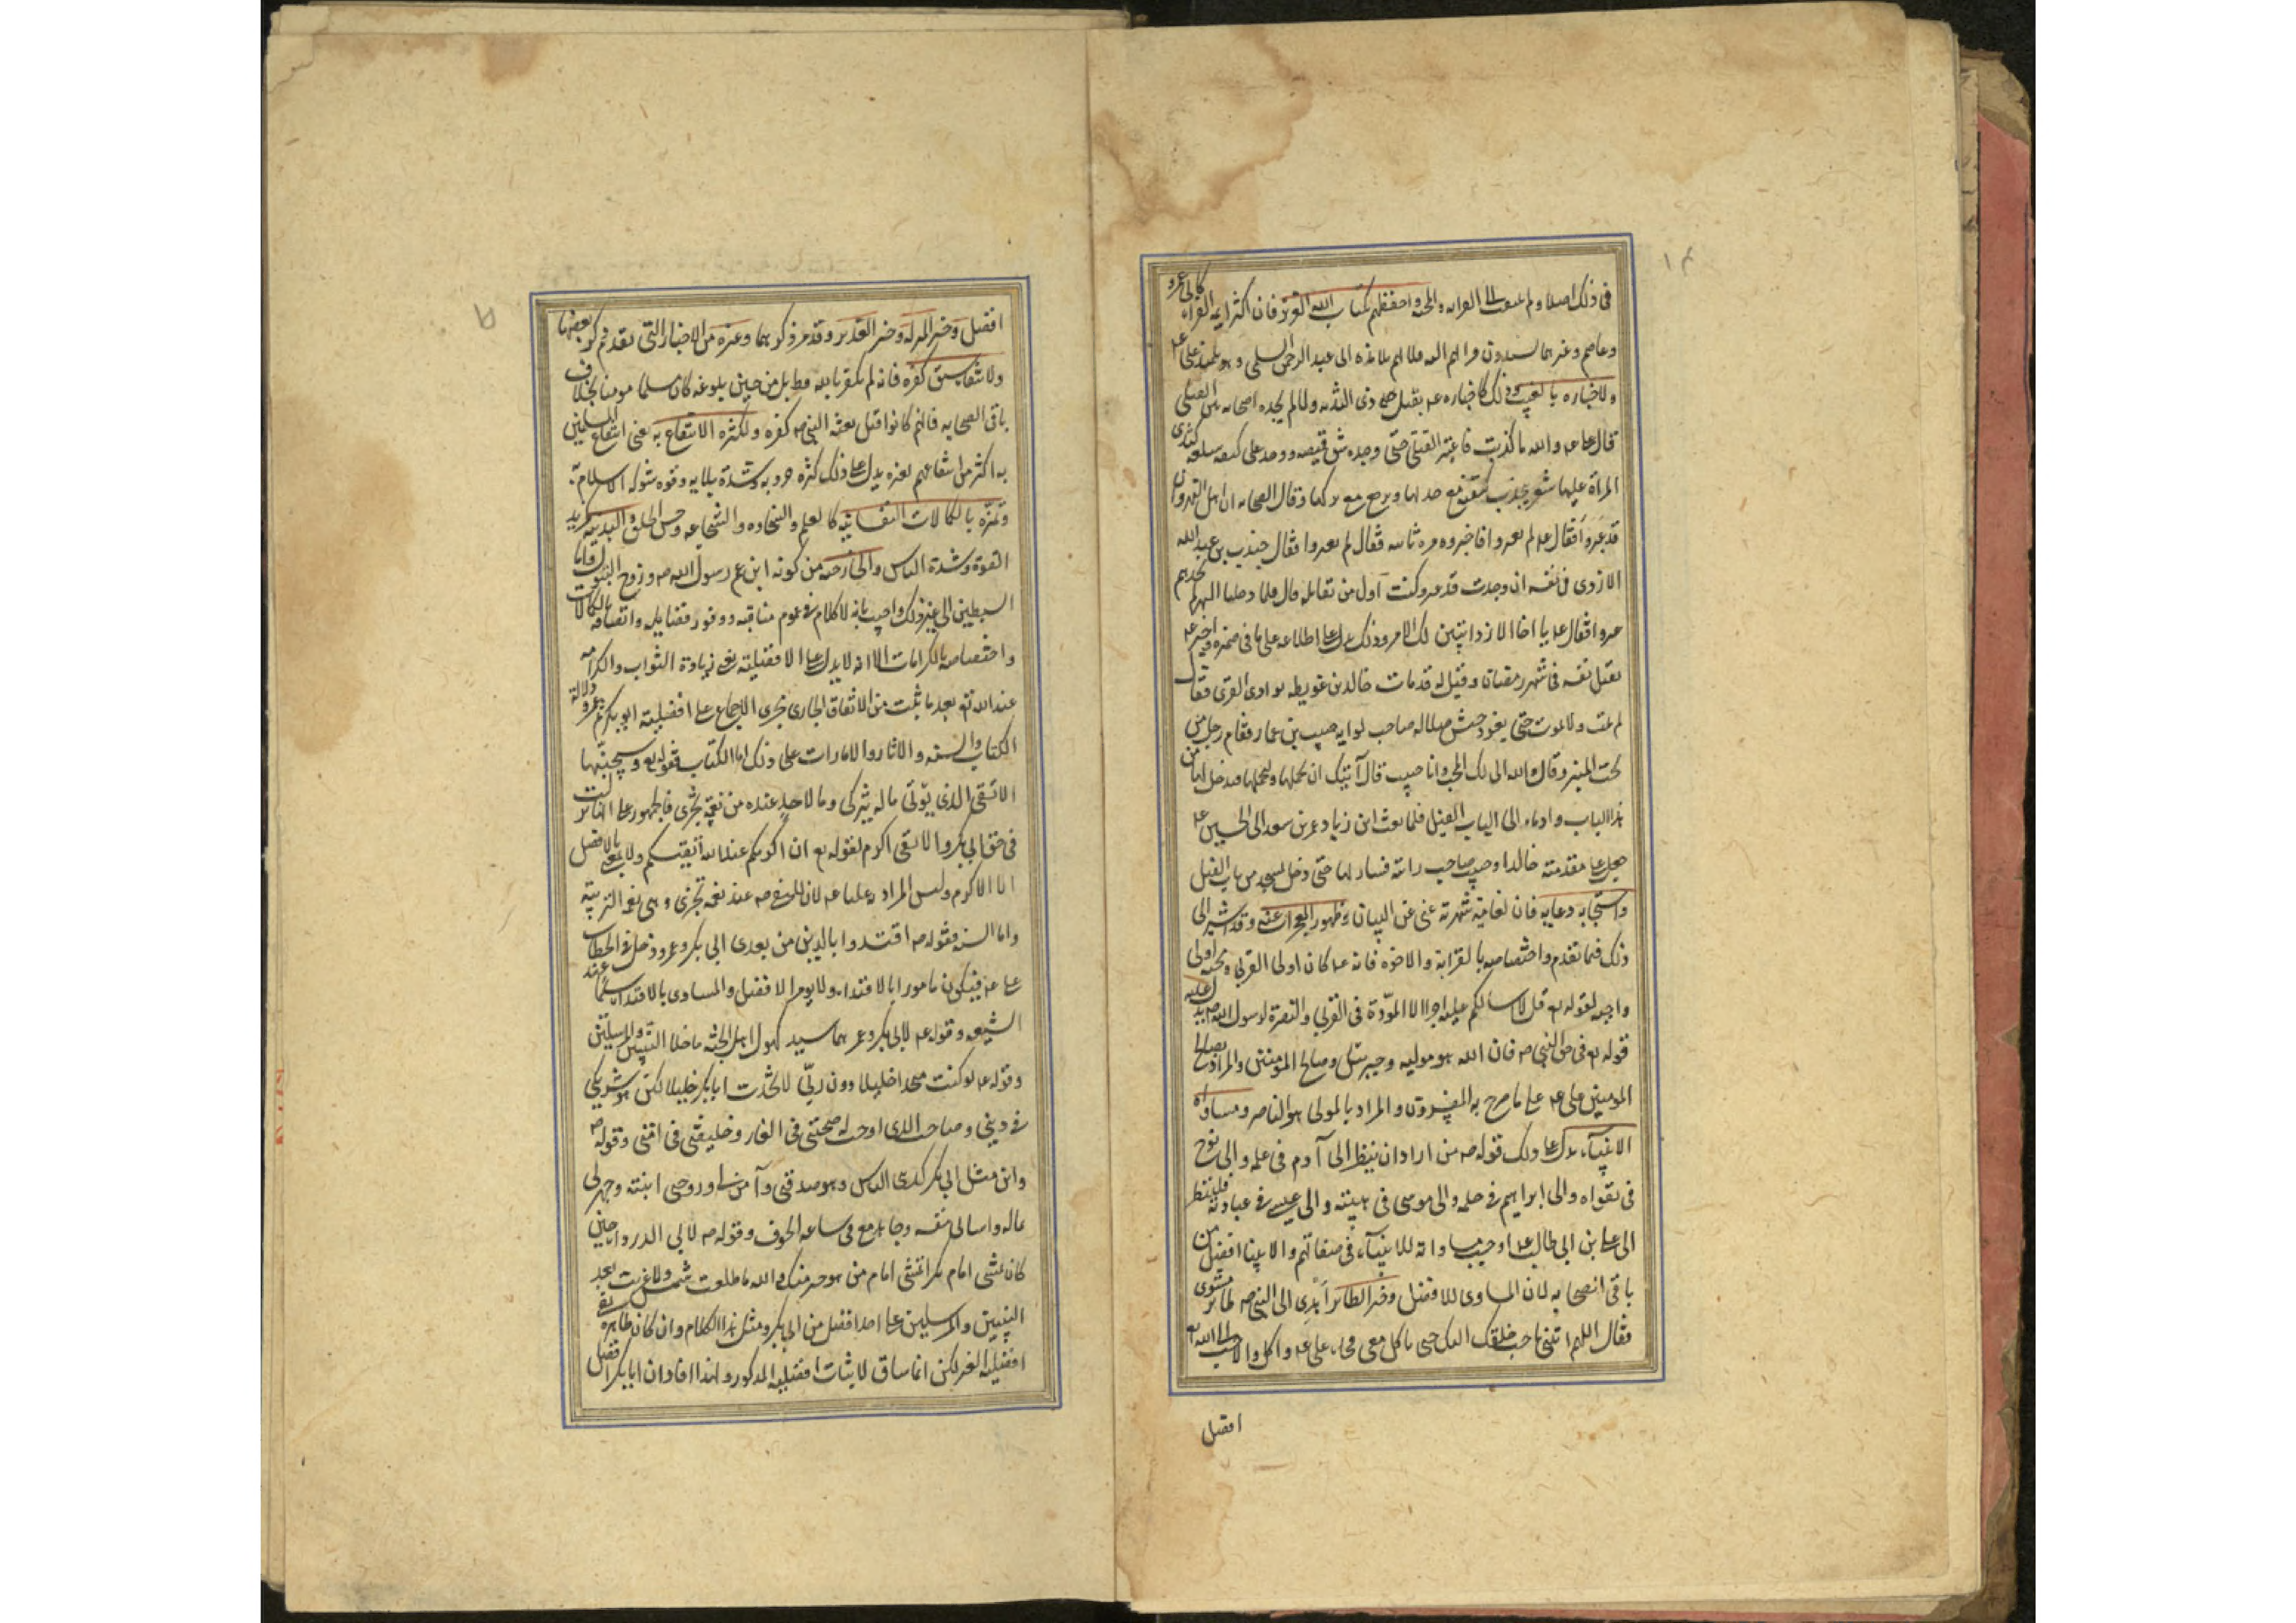 فى ذلك اصلا ولم الى القرابه والمحبه واحفظهم لكتاب الله العزيز فان اكثر ايمه القراه كابى عمرو
وعاصم وغيرهما يسندون قراءتهم اليه فانهم تلامذه ابى عبد الرحمن السلمى وهو تلميذ على عه
ولاخباره بالغيب وذلك كاخباره عه بقتل ذى الثديه ولما لم يجده اصحابه بين القتلى
قال عه والله ما كذبت فاعتبر القتلى حتى وجده وشق قميصه ووجد على كتفه سلعه كثدى
المراة عليها شعر ينجذب كتفه مع جذبها ويرجع مع تركها وقال اصحابه ان اهل النهروان
قد عبروا فقال عه لم يعبروا فاخبروه مره ثانيه فقال لم يعبروا فقال جندب بن عبد الله
الازدى فى نفسه ان وجدت قد عبروا كنت اول من يقاتله قال فلما وصلنا النهر لم نجدهم
عبروا فقال عه يا اخا الازد اتبين لك الامر وذلك يدل على اطلاعه على ما فى ضميره واخبر عه
بقتل نفسه فى شهر رمضان وقيل له قد مات خالد بن عويطه بوادى القرى فقال
لم يمت ولا يموت حتى يقود جيش ضلاله صاحب لوايه حبيب بن عمار فقام رجل من
تحت المنبر وقال والله انى لك لمحب وانا حبيب قال اياك ان تحملها ولتحملها فتدخل بها من
هذا الباب واوماء الى الباب الفيل فلما بعث ابن زياد عمر بن سعد الى الحسين عه
جعل على مقدمته خالدا وحبيب صاحب رايته فسار بها حتى دخل المسجد من باب الفيل
واستجابه دعايه فان لغاية شهرته غنى عن البيان وظهور المعجزات عنه وقد اشير الى
ذلك فيما تقدم واختصاصه بالقرابة والاخوه فانه عه كان اولى القربى ومحبه اولى
واجبه لقوله تع قل لا اسالكم عليه اجرا الا المودة فى القربى والنصرة لرسول الله ص يدل عليه
قوله تع فى حق النبى ص فان الله هو موليه وجبرئيل وصالح المومنين والمراد بصالح
المومنين على عه على ما صرح به المفسرون والمراد بالمولى هو الناصر ومساواه
الانبياء يدل على ذلك قوله ص من اراد ان ينظر الى آدم فى علمه والى نوح
فى تقواه والى ابراهيم فى حلمه والى موسى فى هيبته والى عيسى فى عبادته فلينظر
الى على بن ابى طالب عه اوجب مساواته للانبياء فى صفاتهم والانبياء افضل من
باقى الصحابه لان المساوى للافضل وخبر الطائر اهدى الى النبى ص طائر مشوى
فقال اللهم ائتنى باحب خلقك اليك حتى ياكل معى فجاء على عه واكل والاحب الى الله تع
افضل
افضل وخبر المنزله وخبر الغدير وقد مر ذكرهما وغيره من الاخبار التى تقدم ذكر بعضها
ولانتفاء سبق كفره فانه لم يكفر بالله قط بل من حين بلوغه كان مسلما مومنا بخلاف
باقى الصحابه فانهم كانوا قبل بعثه النبى ص كفره ولكثره الانتفاع به يعنى انتفاع المسلمين
به اكثر من انتفاعهم بغيره يدل على ذلك كثره حروبه وشدة بلايه وقوه شوكه الاسلام به
وتميزه بالكمالات النفسانيه كالعلم والسخاوه والشجاعه وحسن الخلق والبدنيه كمزيد
القوة وشدة الباس والخارجه من كونه ابن عم رسول الله ص وزوج البتول وابا
السبطين الى غير ذلك واجيب بانه لا كلام فى عموم مناقبه ووفور فضايله واتصافه بالكمالات
واختصاصه بالكرامات الا انه لا يدل على الافضليته بمعنى زيادة الثواب والكرامه
عند الله تع بعد ما ثبت من الاتفاق الجارى مجرى الاجماع على افضليه ابى بكر ثم عمر ودلالة
الكتاب والسنه والاثار والامارات على ذلك اما الكتاب فقوله تع وسيجنبها
الاتقى الذى يؤتى ماله يتزكى وما لاحد عنده من نعمة تجزى فالجمهور على انها نزلت
فى حق ابى بكر والاتقى اكرم لقوله تع ان اكرمكم عند الله اتقيكم ولا يعنى بالافضل
الا الاكرم وليس المراد به عليا عه لان للنبى ص عنده نعمة تجزى وهى نعمة التربية
واما السنه فقوله ص اقتدوا بالذين من بعدى ابى بكر وعمر ودخل فى الخطاب
على عه فيكون مامورا بالاقتداء ولا يومر الافضل والمساوى بالاقتداء سيما عند
الشيعه وقوله عه لابى بكر وعمر هما سيدا كهول اهل الجنه ما خلا النبيين والمرسلين
وقوله عه لو كنت متخذا خليلا دون ربى لاتخذت ابا بكر خليلا لكن هو شريكى
فى دينى وصاحبى الذى اوجبت له صحبتى فى الغار وخليفتى فى امتى وقوله ص
واين مثل ابى بكر كذبنى الناس وهو صدقنى وآمن بى وزوجنى ابنته وجهزنى
بماله واسانى بنفسه وجاهد معى فى ساعه الخوف وقوله ص لابى الدرداء حين
كان يمشى امام ابى بكر اتمشى امام من هو خير منك والله ما طلعت شمس ولا غربت بعد
النبيين والمرسلين على احد افضل من ابى بكر ومثل هذا الكلام وان كان ظاهره نفى
افضليه الغير لكن انما يساق لاثبات افضليه المذكور ولهذا افاد ان ابا بكر افضل